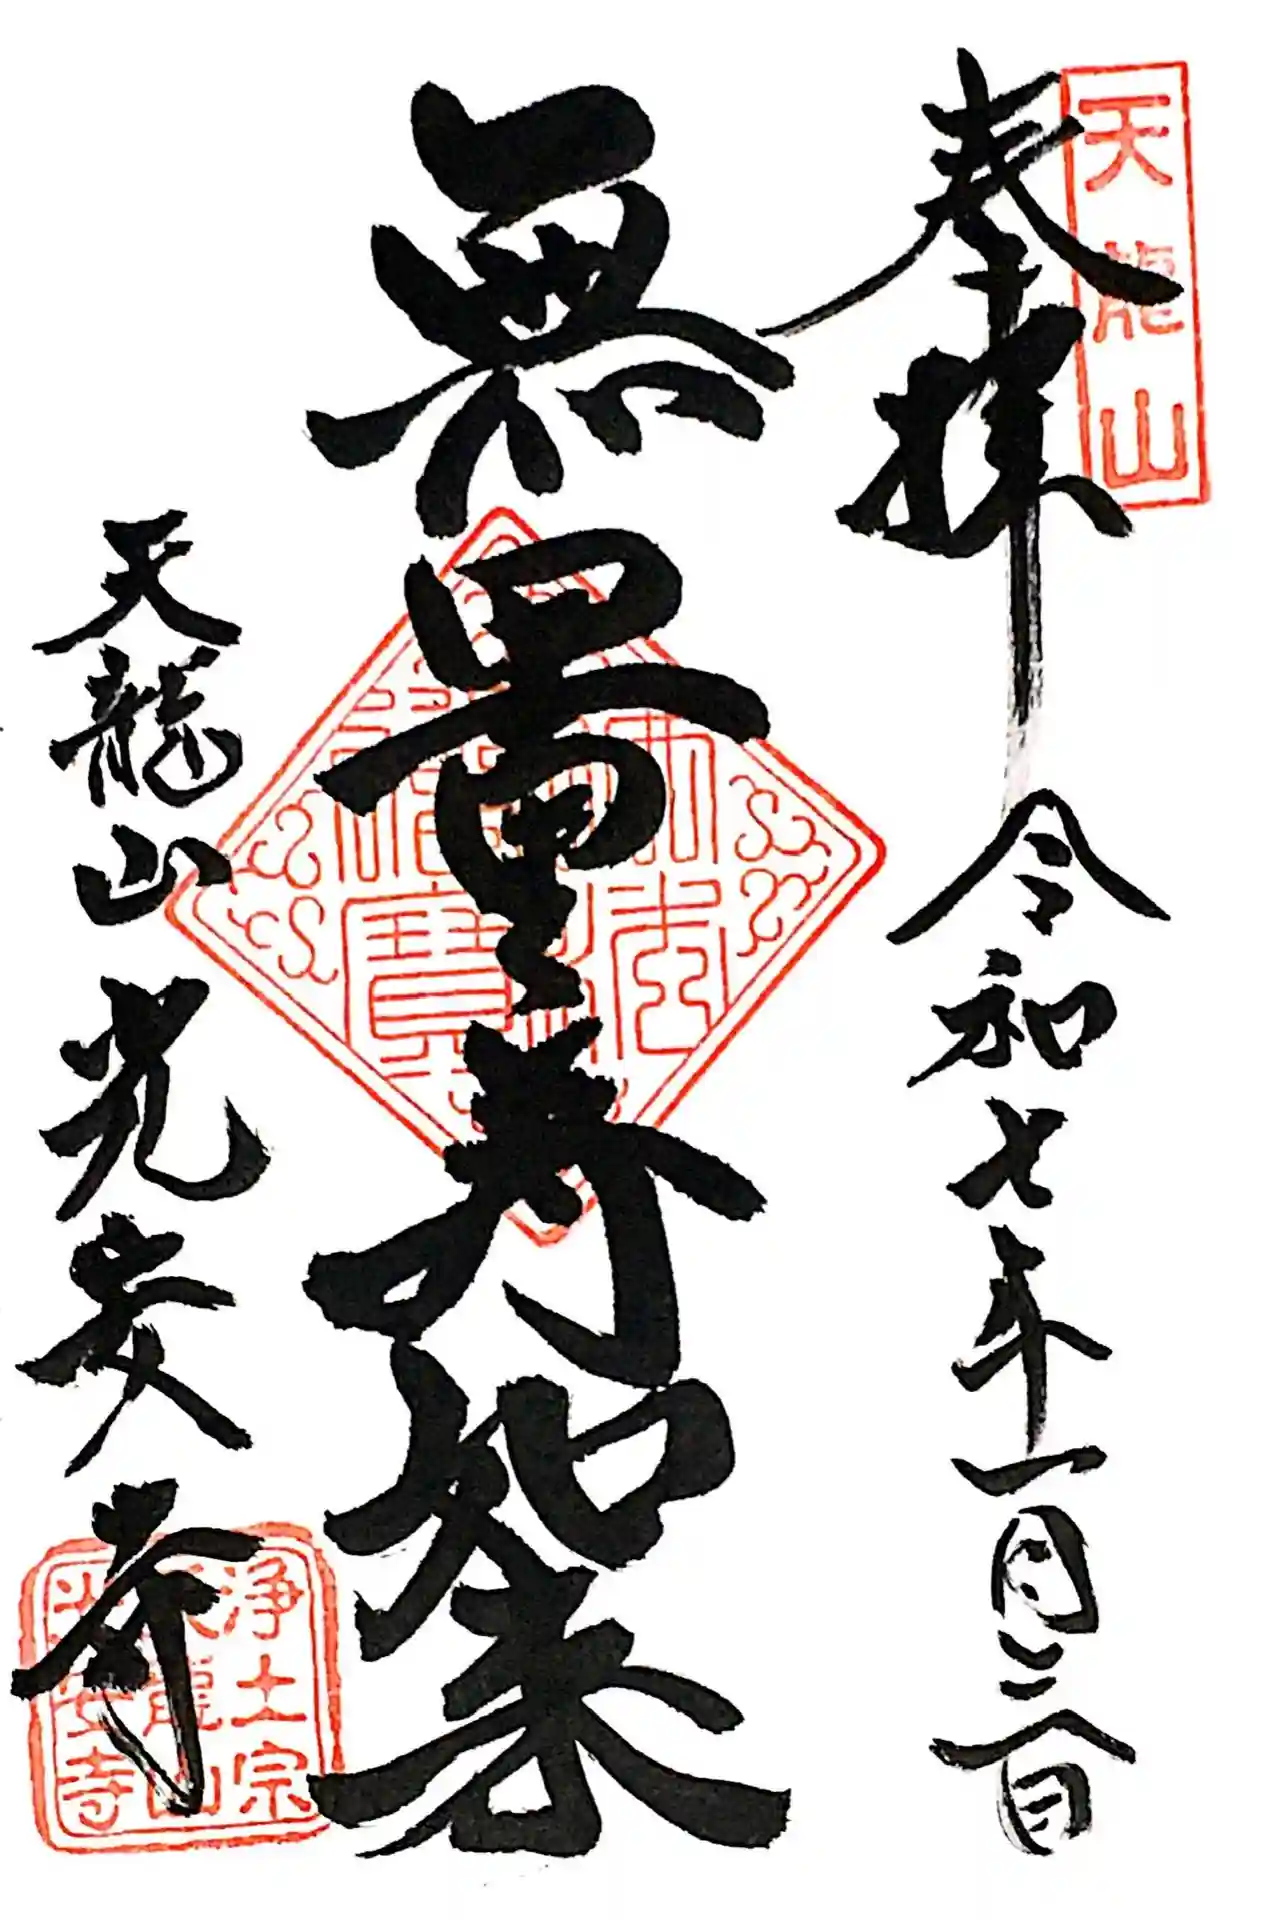 天龍山
奉拝
令和七年一月二八日
無量寿如来
佛法
僧寶
天龍山 光安寺
浄土宗
天龍山
光安寺